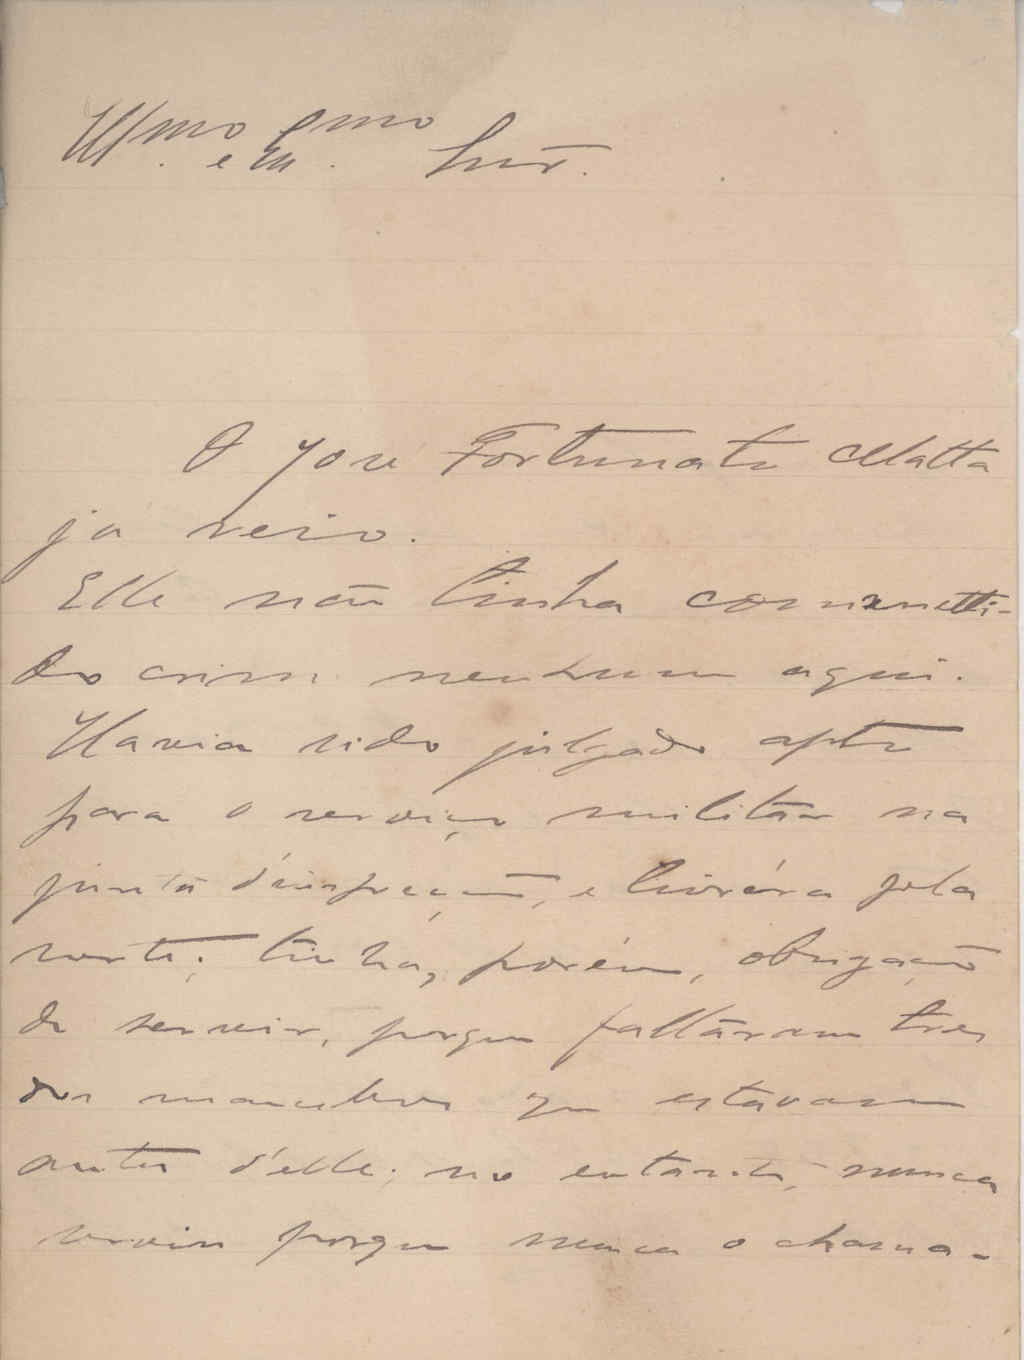 Illmo e Exmo Snr.
O José Fortunato Matta
ja veio.
Elle não tinha commetti-
do crime nenhum aqui.
Havia sido julgado apto
para o serviço militar na
junta d'inspecção, e livrára pela
sorte; tinha, porém, obrigação
de servir, porque faltáram tres
dos mancebos que estavam
antes d'elle; no entanto, nunca
serviu porque nunca o chama-